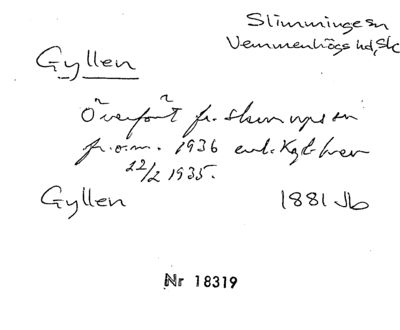 Slimminge sn
Vemmenhögs hd, Sk
Gyllen
Överfört fr. Skurups sn
fr.o.m. 1936 enl. Kgl. brev
22/2 1935.
Gyllen 1881 Jb
Nr 18319